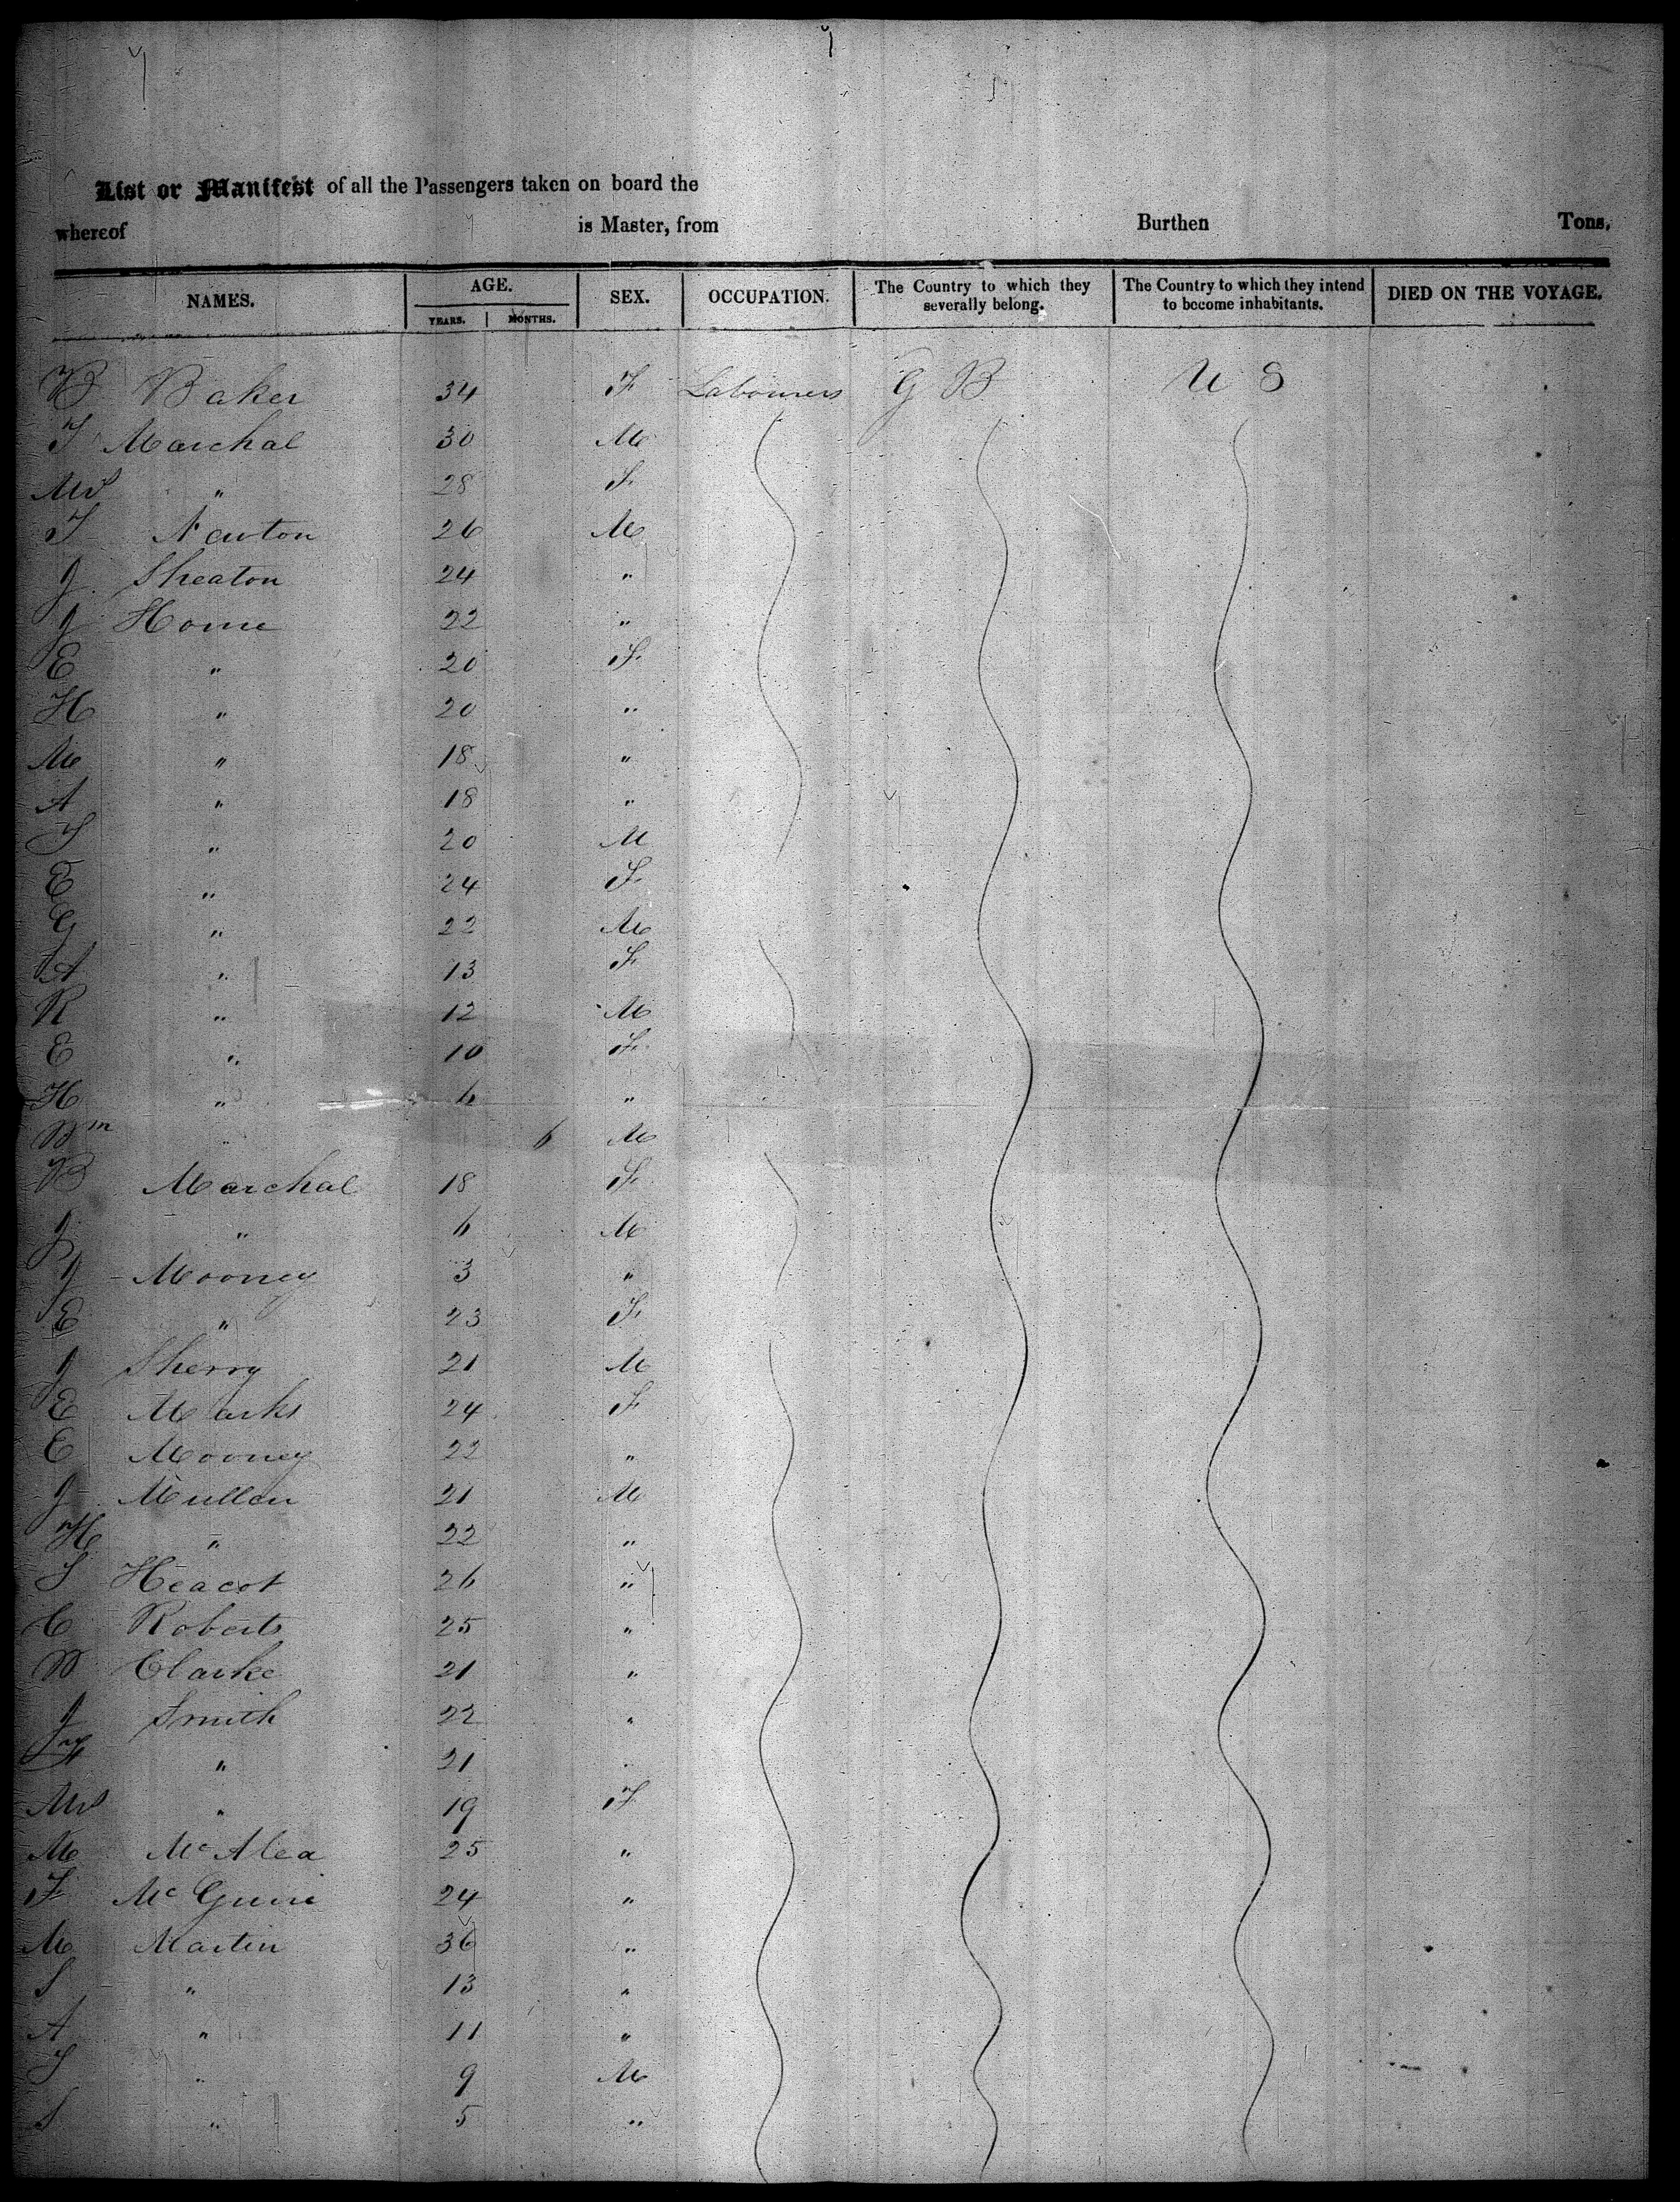 List or Manifest of all the Passengers taken on board the
whereof is Master, from Burthen Tons,
NAMES. AGE. SEX. OCCUPATION. The Country to which they severally belong. The Country to which they intend to become inhabitants. DIED ON THE VOYAGE.
YEARS. MONTHS.
B Baker 34 F Labourers G B U S
T Marchal 30 M
Mrs " 28 F
T Newton 26 M
J Sheaton 24 "
J Home 22 "
E " 20 F
H " 20 "
M " 18 "
A " 18 "
S " 20 M
E " 24 F
G " 22 M
A " 13 F
R " 12 M
E " 10 F
H " 6 "
Wm " 6 M
B Marchal 18 F
J " 6 M
J Mooney 3 "
E " 23 F
J Sherry 21 M
E Marks 24 F
E Mooney 22 "
J Mullen 21 M
H " 22 "
S Heacot 26 "
C Roberts 25 "
W Clarke 21 "
J Smith 22 "
" 21 "
Mrs " 19 F
M McAlea 25 "
F McGuire 24 "
M Martin 36 "
S " 13 "
A " 11 "
S " 9 M
S " 5 "